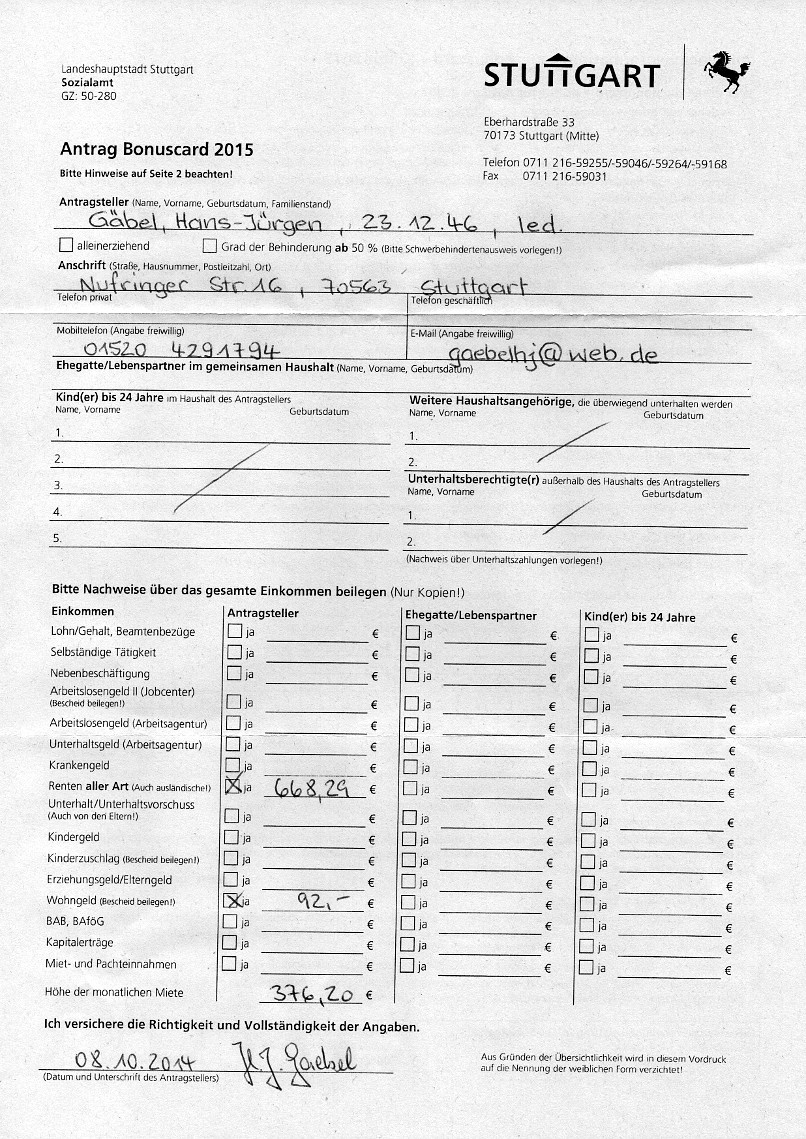 Landeshauptstadt Stuttgart
Sozialamt
GZ: 50-280
STUTTGART
Eberhardstraße 33
70173 Stuttgart (Mitte)
Telefon 0711 216-59255/-59046/-59264/-59168
Fax 0711 216-59031
Antrag Bonuscard 2015
Bitte Hinweise auf Seite 2 beachten!
Antragsteller (Name, Vorname, Geburtsdatum, Familienstand)
Gäbel, Hans-Jürgen, 23.12.46, led.
alleinerziehend Grad der Behinderung ab 50 % (Bitte Schwerbehindertenausweis vorlegen!)
Anschrift (Straße, Hausnummer, Postleitzahl, Ort)
Nufringer Str.16, 70563 Stuttgart
Telefon privat Telefon geschäftlich
Mobiltelefon (Angabe freiwillig) E-Mail (Angabe freiwillig)
01520 4291794 gaebelhj@web.de
Ehegatte/Lebenspartner im gemeinsamen Haushalt (Name, Vorname, Geburtsdatum)
Kind(er) bis 24 Jahre im Haushalt des Antragstellers
Name, Vorname Geburtsdatum
1.
2.
3.
4.
5.
Weitere Haushaltsangehörige, die überwiegend unterhalten werden
Name, Vorname Geburtsdatum
1.
2.
Unterhaltsberechtigte(r) außerhalb des Haushalts des Antragstellers
Name, Vorname Geburtsdatum
1.
2.
(Nachweis über Unterhaltszahlungen vorlegen!)
Bitte Nachweise über das gesamte Einkommen beilegen (Nur Kopien!)
Einkommen Antragsteller Ehegatte/Lebenspartner Kind(er) bis 24 Jahre
Lohn/Gehalt, Beamtenbezüge ja € ja € ja €
Selbständige Tätigkeit ja € ja € ja €
Nebenbeschäftigung ja € ja € ja €
Arbeitslosengeld II (Jobcenter)
(Bescheid beilegen!) ja € ja € ja €
Arbeitslosengeld (Arbeitsagentur) ja € ja € ja €
Unterhaltsgeld (Arbeitsagentur) ja € ja € ja €
Krankengeld ja € ja € ja €
Renten aller Art (Auch ausländische!) X ja 668,29 € ja € ja €
Unterhalt/Unterhaltsvorschuss
(Auch von den Eltern!) ja € ja € ja €
Kindergeld ja € ja € ja €
Kinderzuschlag (Bescheid beilegen!) ja € ja € ja €
Erziehungsgeld/Elterngeld ja € ja € ja €
Wohngeld (Bescheid beilegen!) X ja 92,- € ja € ja €
BAB, BAföG ja € ja € ja €
Kapitalerträge ja € ja € ja €
Miet- und Pachteinnahmen ja € ja € ja €
Höhe der monatlichen Miete 376,20 €
Ich versichere die Richtigkeit und Vollständigkeit der Angaben.
08.10.2014 H.J. Gaebel
(Datum und Unterschrift des Antragstellers)
Aus Gründen der Übersichtlichkeit wird in diesem Vordruck
auf die Nennung der weiblichen Form verzichtet!